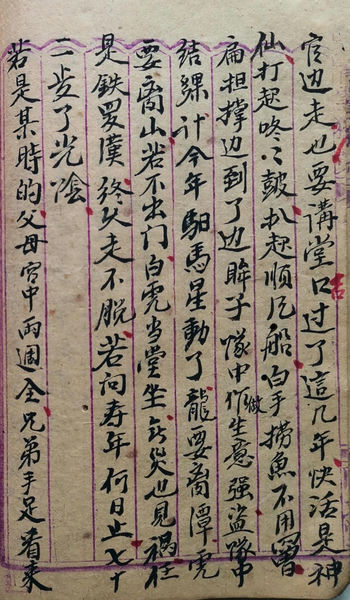 官边走也要講堂口过了這几年快活是神
仙打起咚々鼓扒起順风船白手捞魚不用罾
扁担撑边到了边眸子隊中做生意强盗隊中
結髁计今年驲馬星動了龍要离潭虎
要离山若不出门白虎当堂坐无災也見禍任
是鉄罗漢終久走不脱若问寿年何日止七十
二歩了光陰
若是某時的父母宫中两週全兄弟手足看来